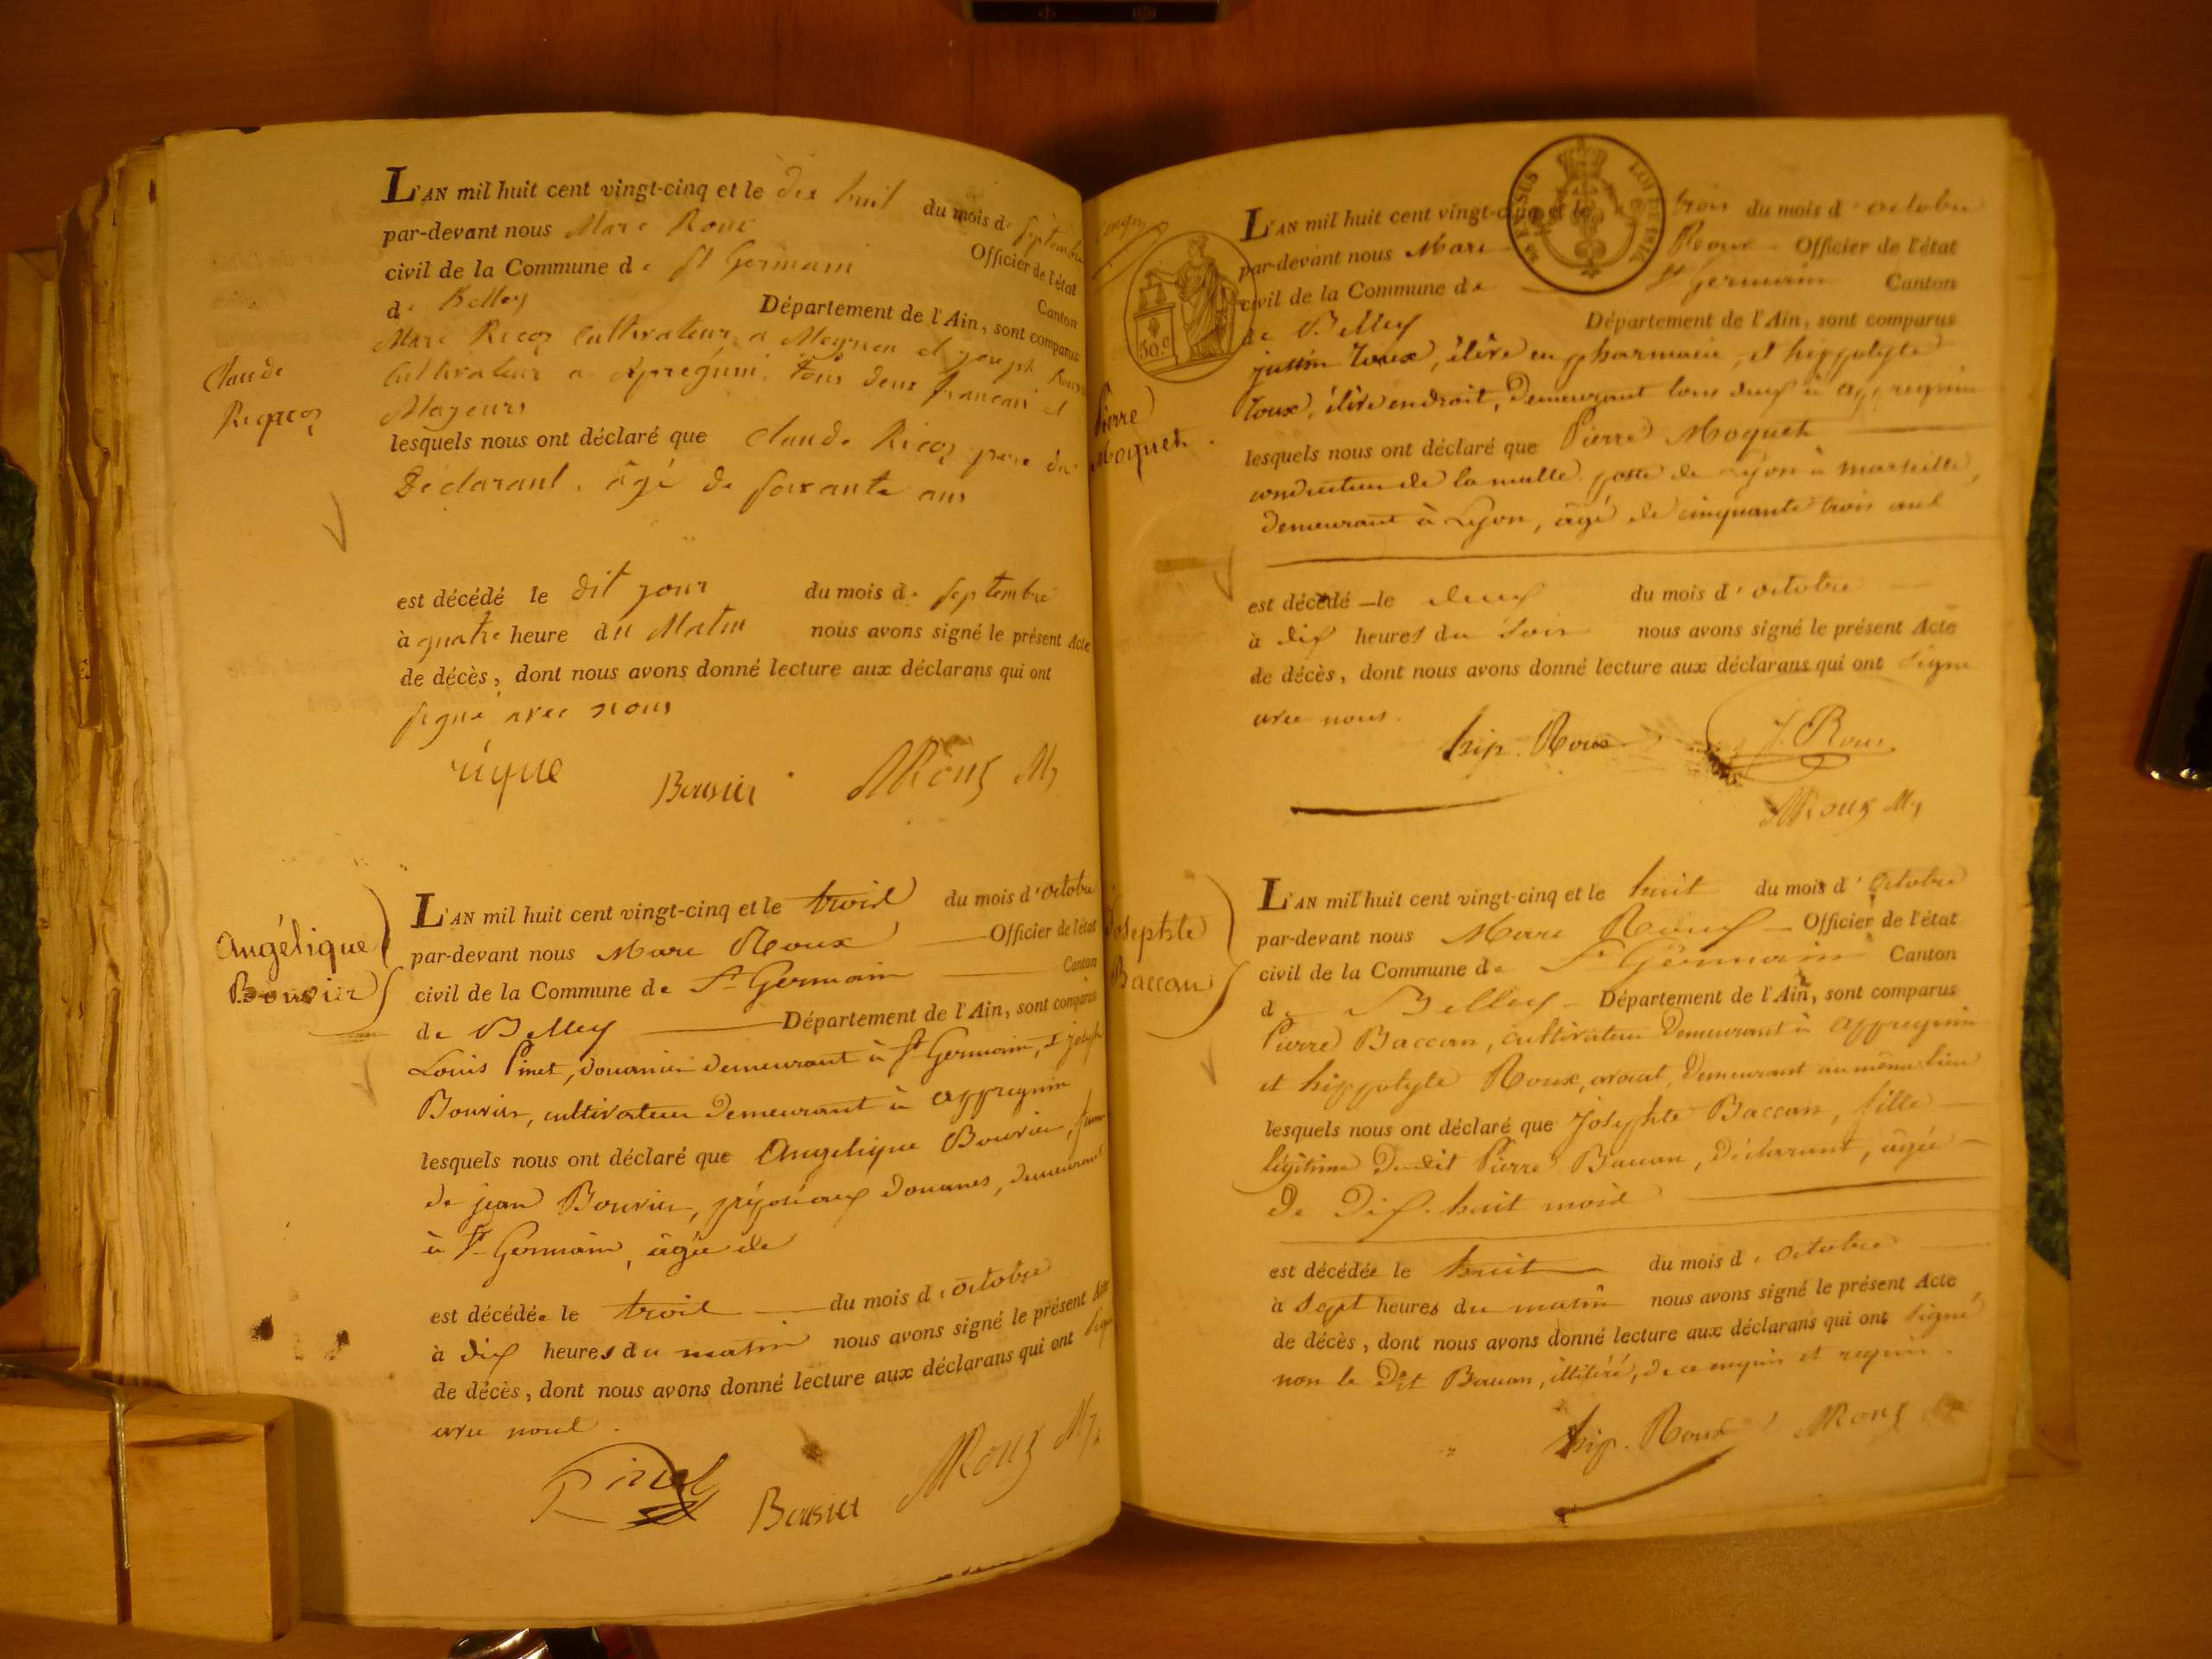 L'AN mil huit cent vingt-cinq et le dix huit du mois de Septembre
par-devant nous Marc Roux Officier de l'état
civil de la Commune de St Germain Canton
de Belley Département de l'Ain, sont comparus
Marc Ricoz Cultivateur a et joseph
Cultivateur a Apregnin. tous deux francais et
Majeurs
Claude
lesquels nous ont déclaré que Claude Ricoz pere du
Déclarant. âgé de soixante ans
est décédé le dit jour du mois de septembre
à quatre heure du Matin nous avons signé le présent Acte
de décès, dont nous avons donné lecture aux déclarans qui ont
signé avec nous
rique Bousier MRoux M
Angélique
Bouvier
L'AN mil huit cent vingt-cinq et le trois du mois d'octobre
par-devant nous Marc Roux Officier de l'état
civil de la Commune de St Germain Canton
de Belley Département de l'Ain, sont comparus
Louis Pinet, douanier demeurant à St Germain, & joseph
Bouvier, cultivateur demeurant à appregnin
lesquels nous ont déclaré que Angelique Bouvier, femme
de jean Bouvier, préposé aux douanes, demeurant
à St Germain, agée de
est décédée le trois du mois d'octobre
à dix heures du matin nous avons signé le présent Acte
de décès, dont nous avons donné lecture aux déclarans qui ont signé
avec nous.
Pinet Bousier MRoux M
50.c
LOI DE 1816
L'AN mil huit cent vingt-cinq et le trois du mois d'octobre
par-devant nous Marc Roux Officier de l'état
civil de la Commune de St Germain Canton
de Belley Département de l'Ain, sont comparus
justin Roux, élève en pharmacie, et hippolyte
Roux, élève en droit, demeurant tous deux à appregnin
Pierre
Moquet.
lesquels nous ont déclaré que Pierre Moquet
conducteur de la malle poste de Lyon à marseille,
demeurant à Lyon, âgé de cinquante trois ans
est décédé le deux du mois d'octobre
à dix heures du soir nous avons signé le présent Acte
de décès, dont nous avons donné lecture aux déclarans qui ont signé
avec nous.
hip. Roux J. Roux
MRoux M
Josephte
Baccan
L'AN mil huit cent vingt-cinq et le huit du mois d'octobre
par-devant nous Marc Roux Officier de l'état
civil de la Commune de St Germain Canton
de Belley Département de l'Ain, sont comparus
Pierre Baccan, cultivateur demeurant à appregnin
et hippolyte Roux, avocat, demeurant au même lieu
lesquels nous ont déclaré que Josephte Baccan, fille
légitime dudit Pierre Baccan, déclarant, agée
de dix-huit mois
est décédée le huit du mois d'octobre
à sept heures du matin nous avons signé le présent Acte
de décès, dont nous avons donné lecture aux déclarans qui ont signé
non le dit Baccan, illitéré, de ce enquis et requis.
hip. Roux MRoux